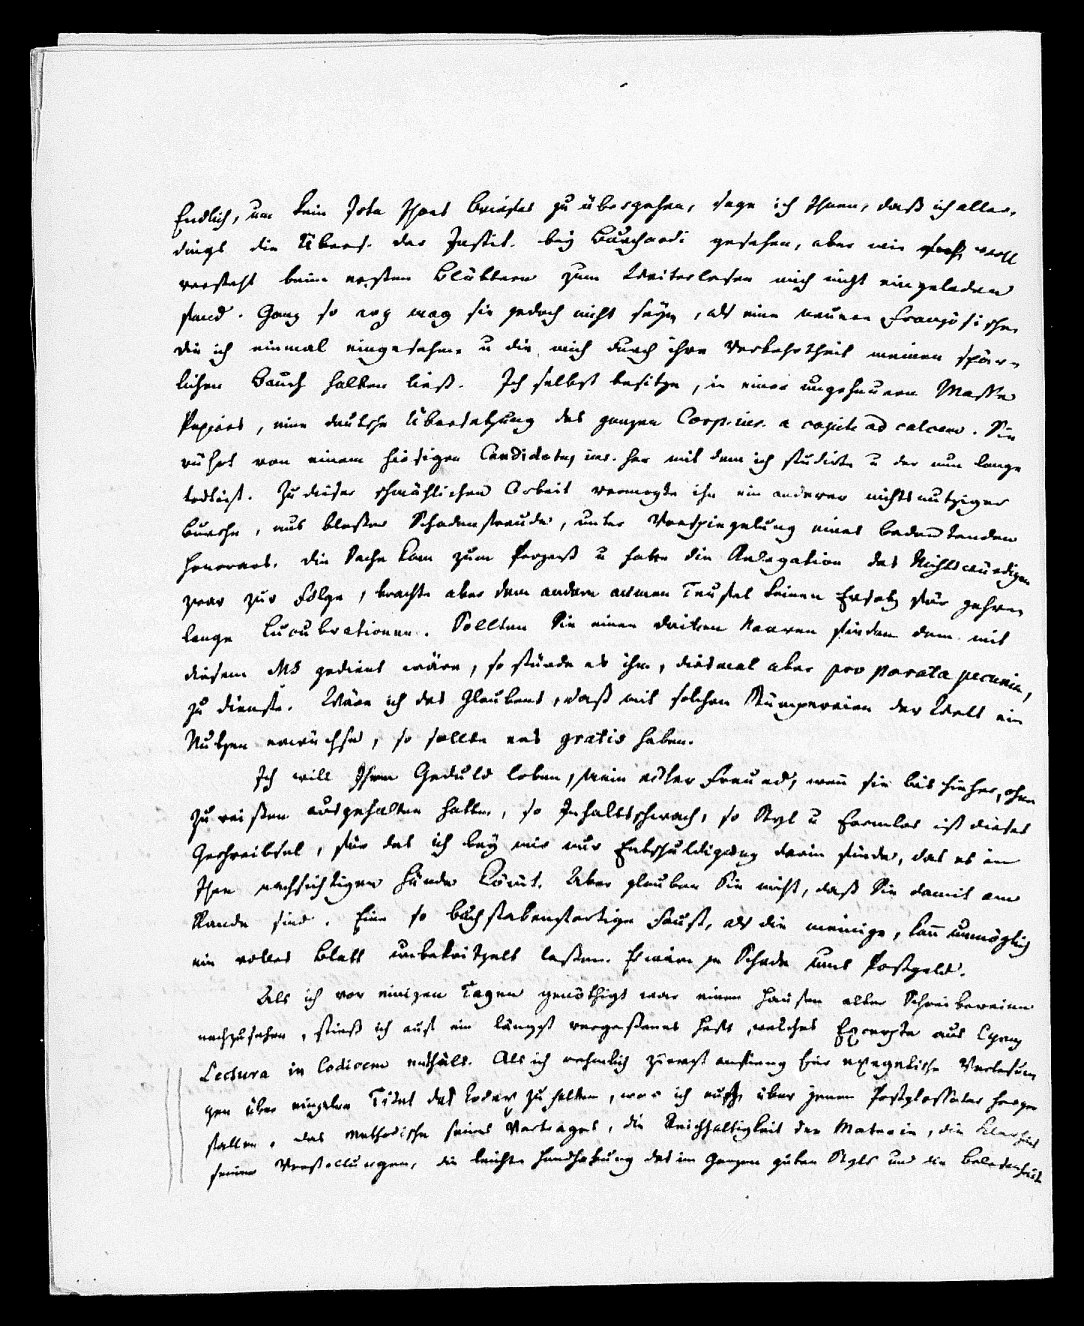 Endlich, um kein Jota Ihres Briefes zu übergehen, sage ich Ihnen, daß ich aller-
dings die Übers. der Instit. bey Burchardi gesehen, aber wie wohl
versteht beim ersten Blättern zum Weiterlesen mich nicht eingeladen
fand. Ganz so arg mag sie jedoch nicht seyn, als eine neuere französische,
die ich einmal eingesehen u die mich durch ihre Verkehrtheit meinen spär-
lichen Bauch halten ließ. Ich selbst besitze, in einer ungeheuern Masse
Papiers, eine deutsche Übersetzung des ganzen Corp. iur. a capite ad calcem. Sie
rührt von einem hiesigen Candidaten iur. her mit dem ich studirte u der nun lange
todt ist. Zu dieser schmählichen Arbeit vermogte ihn ein anderer nichtsnutziger
Bursche, aus bloßer Schadenfreude, unter Vorspiegelung eines bedeutenden
Honorars. Die Sache kam zum Prozeß u hatte die Relegation des Nichtswürdigen
zwar zur Folge, brachte aber dem andern armen Teufel keinen Ersatz für jahre-
lange Lucubrationen. Sollten Sie einen dritten Narren finden dem mit
diesem MS gedient wäre, so stünde es ihm, diesmal aber pro parata pecunia,
zu Dienste. Wäre ich des Glaubens, daß mit solchen Stümpereien der Welt ein
Nutzen erwüchse, so sollte ers gratis haben.
Ich will Ihre Geduld loben, mein edler Freund, wenn sie bis hieher, ohne
zu reißen ausgehalten hatte, so Inhaltsschwach, so Styl u Formlos ist dieses
Geschreibsel, für das ich bey mir nur Entschuldigung darin finde, das es in
Ihre nachsichtigen Hände kömt. Aber glauben Sie nicht, daß Sie damit am
Rande sind. Eine so buchstabenfertige Faust, als die meinige, kann unmöglich
ein volles Blatt unbekritzelt laßen. Es wäre ja Schade ums Postgeld.
Als ich vor einigen Tagen genöthigt war einen Haufen alter Schreibereien
nachzusehen, stieß ich auf ein längst vergeßenes Heft, welches Excerpte aus Cyni
Lectura in Codicem enthält. Als ich nehmlich zuerst anfieng hier exegetische Vorlesun-
gen über einzelne Titel des Codex zu halten, war ich auch über jenen Postglossator herge-
fallen, das Methodische seines Vortrages, die Reichhaltigkeit der Materie, die Klarheit
seiner Vorstellungen, die leichte Handhabung des im Ganzen guten Styls und die Belesenheit